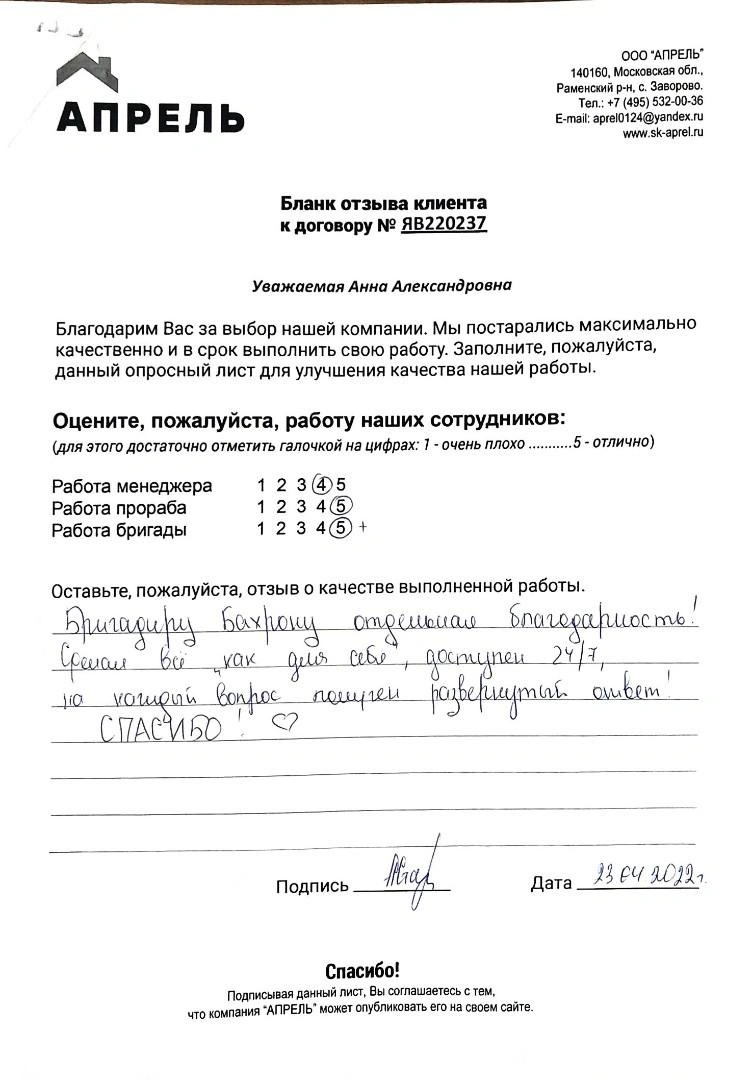 АПРЕЛЬ
ООО "АПРЕЛЬ"
140160, Московская обл.,
Раменский р-н, с. Заворово.
Тел.: +7 (495) 532-00-36
E-mail: aprel0124@yandex.ru
www.sk-aprel.ru
Бланк отзыва клиента
к договору № ЯВ220237
Уважаемая Анна Александровна
Благодарим Вас за выбор нашей компании. Мы постарались максимально
качественно и в срок выполнить свою работу. Заполните, пожалуйста,
данный опросный лист для улучшения качества нашей работы.
Оцените, пожалуйста, работу наших сотрудников:
(для этого достаточно отметить галочкой на цифрах: 1 - очень плохо ...........5 - отлично)
Работа менеджера 1 2 3 4 5
Работа прораба 1 2 3 4 5
Работа бригады 1 2 3 4 5 +
Оставьте, пожалуйста, отзыв о качестве выполненной работы.
Бригадиру Бахрому отдельная благодарность!
Сделал всё "как для себя", доступен 24/7,
на каждый вопрос получен развернутый ответ!
СПАСИБО! ♡
Подпись
Дата 23 04 2022г.
Спасибо!
Подписывая данный лист, Вы соглашаетесь с тем,
что компания "АПРЕЛЬ" может опубликовать его на своем сайте.